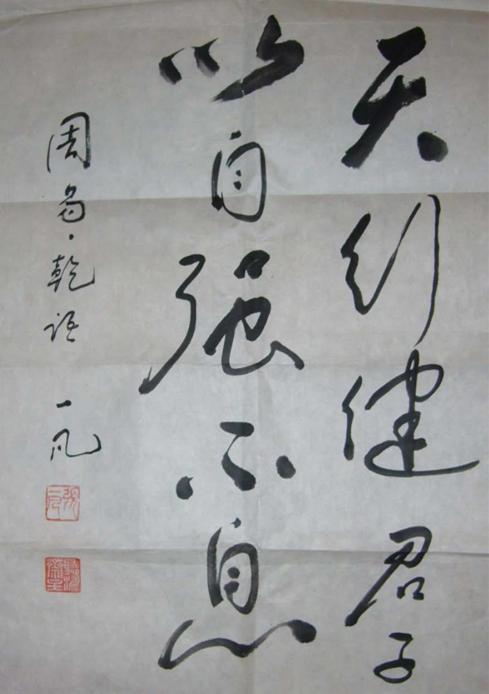 天行健君子
以自强不息
周易·乾语 一凡